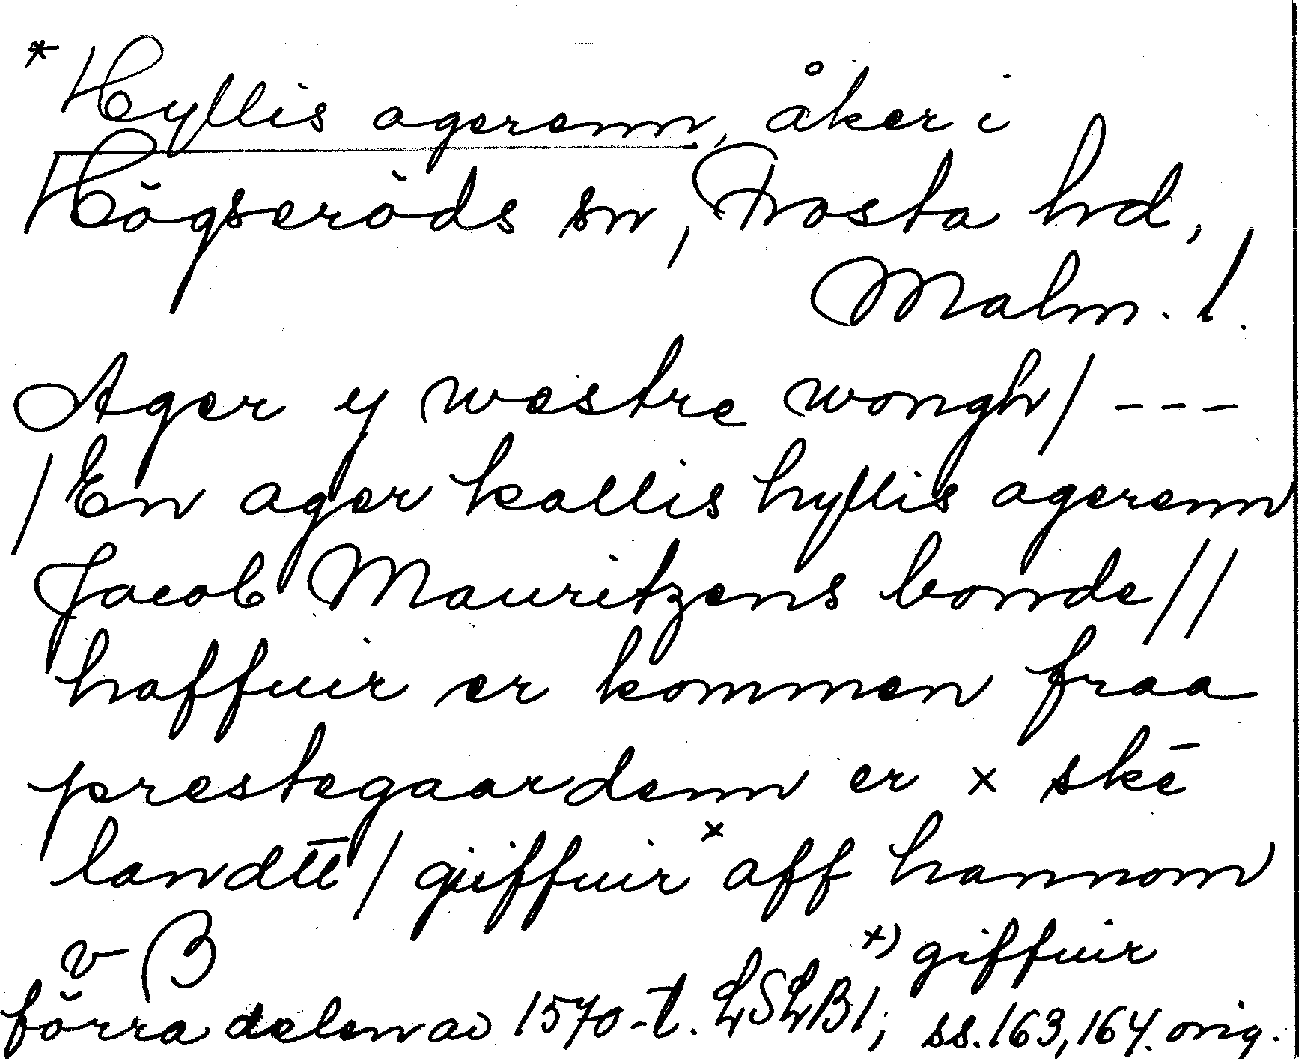 * Hyllis agerenn, åker i
Högseröds sn, Frosta hd,
Malm. l.
Ager y westre wongh/ ---
/En ager kallis hyllis agerenn
Jacob Mauritzens bonde//
haffuir er kommen fraa
prestegaardenn er x skē
landtt/ giffuir x aff hannom
v B x) giffuir
förra delen av 1570-t. LSLB1; ss. 163, 164. orig.